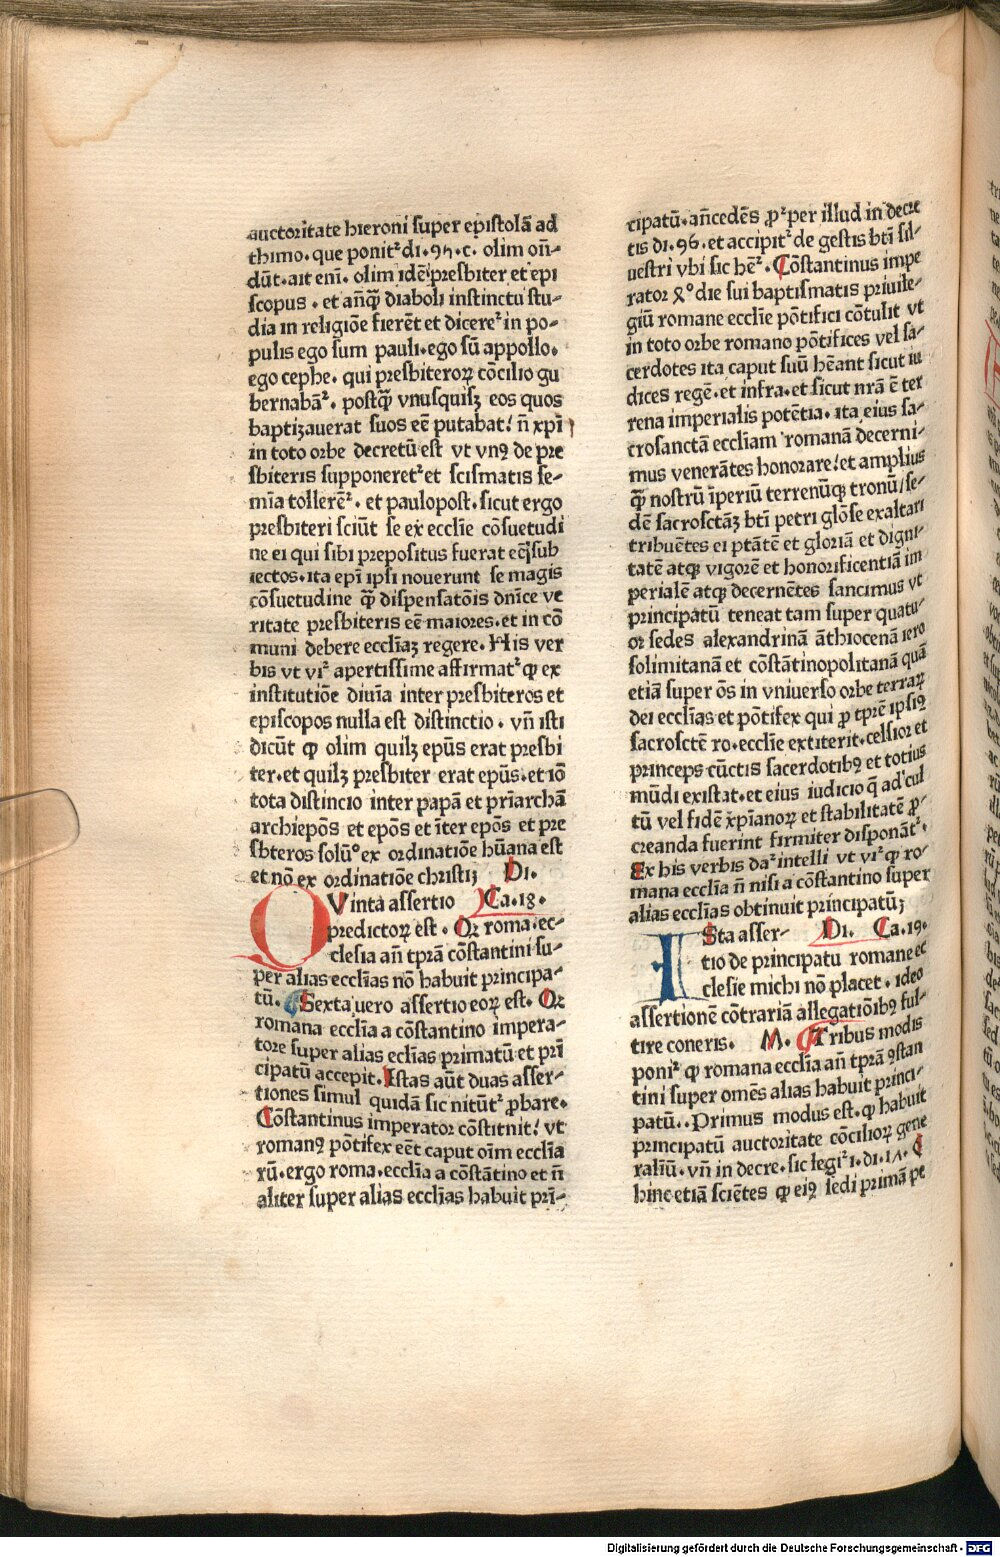 auctoritate hieroni super epistolā ad
thimo. que ponitᷣ di. 95. c. olim oñ-
dūt. ait enī. olim idē presbiter et epi
scopus . et añꝙ̄ diaboli instinctu stu-
dia in religiōe fierēt et dicereᷣ in po-
pulis ego sum pauli. ego sū appollo.
ego cephe. qui presbiteroꝝ cōcilio gu
bernabāᷣ. postꝙ̄ vnusquisꝫ eos quos
baptizauerat suos eē putabat: ñ xp̄i
in toto orbe decretū est vt vnꝰ de pre
sbiteris supponeretᷣ et scismatis se-
mīa tollerēᷣ. et paulopost. sicut ergo
presbiteri sciūt se ex ecclīe cōsuetudi
ne ei qui sibi prepositus fuerat eē sub
iectos. ita epī ipsi nouerunt se magis
cōsuetudine ꝙ̄ dispensatōis dnīce ve
ritate presbiteris eē maiores. et in cō
muni debere ecclīaꝫ regere. His ver
bis vt viᷣ apertissime affirmatᷣ ꝙ ex
institutiōe diuīa inter presbiteros et
episcopos nulla est distinctio . vñ isti
dicūt ꝙ olim quilꝫ epūs erat presbi
ter. et quilꝫ presbiter erat epūs. et iō
tota distincio inter papā et prīarchā
archiepōs et epōs et īter epōs et pre
sbteros solūᵒ ex ordinatiōe hūana est
et nō ex ordinatiōe christiꝫ Di.
QVinta assertio Ca. 18.
predictoꝝ est . Qꝛ roma. ec-
clesia añ tprā cōstantini su-
per alias ecclīas nō habuit principa-
tū. Sexta uero assertio eoꝝ est. Qꝛ
romana ecclīa a cōstantino impera-
tore super alias eclīas primatū et prī
cipatū accepit. Istas aūt duas asser-
tiones simul quidā sic nitūtᷣ ꝓbare.
Cōstantinus imperator cōstitnit: vt
romanꝰ pōtifex eēt caput oīm ecclīa
rū. ergo roma. ecclīa a cōstātino et ñ
aliter super alias ecclīas habuit prī-
cipatū. añcedēs ꝓᷣ per illud in decre
tis di. 96. et accipitᷣ de gestis btī sil-
uestri vbi sic hēᷣ. Cōstantinus impe
rator 8ᵒ die sui baptismatis priuile-
giū romane ecclīe pōtifici cōtulit vt
in toto orbe romano pōtifices vel sa-
cerdotes ita caput suū hēant sicut iu
dices regē. et infra. et sicut nrā ē ter
rena imperialis potētia. ita eius sa-
crosanctā eccliam romanā decerni-
mus venerātes honorare: et amplius
ꝙ̄ nostrū īperiū terrenūqꝫ tronū / se-
dē sacrosctāꝫ btī petri glōse exaltari
tribuētes ei ptātē et gloriā et digni-
tatē atqꝫ vigorē et honorificentiā im
perialē atqꝫ decernētes sancimus vt
principatū teneat tam super quatu-
or sedes alexandrinā āthiocenā iero
solimitanā et cōstātinopolitanā quā
etiā super ōs in vniuerso orbe terraꝝ
dei ecclīas et pōtifex qui ꝓ tprē ipsiꝰ
sacrosctē ro. ecclīe extiterit. celsior et
princeps cūctis sacerdotibꝰ et totius
mūdi existat. et eius iudicio q̄ ad cul
tū vel fidē xp̄ianoꝝ et stabilitatē ꝓ-
creanda fuerint firmiter disponātᷣ.
Ex his verbis daᷣ intelli vt viᷣ ꝙ ro-
mana ecclīa ñ nisi a cōstantino super
alias ecclīas obtinuit principatūꝫ
ISta asser- Di. Ca. 19.
tio de principatu romane ec
clesie michi nō placet . ideo
assertionē cōtrariā allegatiōibꝰ ful-
tire coneris. M. Tribus modis
poniᷣ ꝙ romana ecclīa añ tprā ꝯstan
tini super omēs alias habuit princi-
patū. . Primus modus est. ꝙ habuit
principatū auctoritate cōcilioꝝ gene
raliū. vñ in decre. sic legiᷣ 1. di. 17. C
hinc etiā sciētes ꝙ eiꝰ sedi primā pe
Digitalisierung gefördert durch die Deutsche Forschungsgemeinschaft - DFG